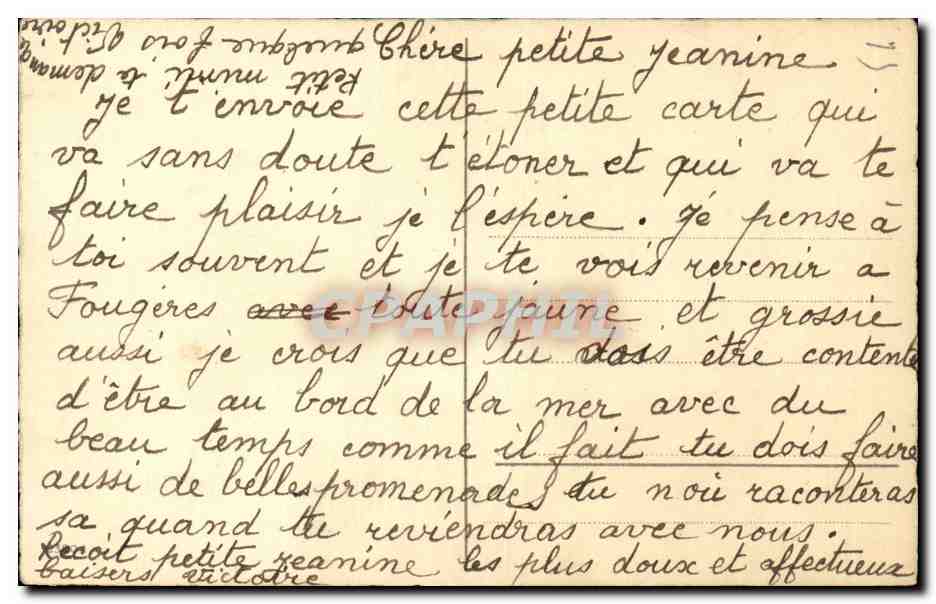 Chère petite Jeanine
Je t'envoie cette petite carte qui
va sans doute t'étoner et qui va te
faire plaisir je l'éspère. Jé pense à
toi souvent et je te vois revenir a
Fougères avec toute jaune et grossie
aussi je crois que tu dois être contente
d'être au bord de la mer avec du
beau temps comme il fait tu dois faire
aussi de belles promenades tu noù raconteras
sa quand tu reviendras avec nous.
Recoit petite Jeanine les plus doux et affectueux
baisers victoire
Petit mimi te demande
quelque fois Victoire
CPAPHIL